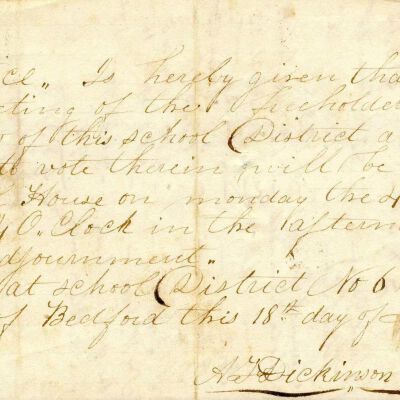 ice" Is hereby given tha
eting of the freeholder
of this school District a
to vote therein will be
House on monday the
O,Clock in the aftern
djournment"
at school District No 6
of Bedford this 18th day of
A J Dickinson